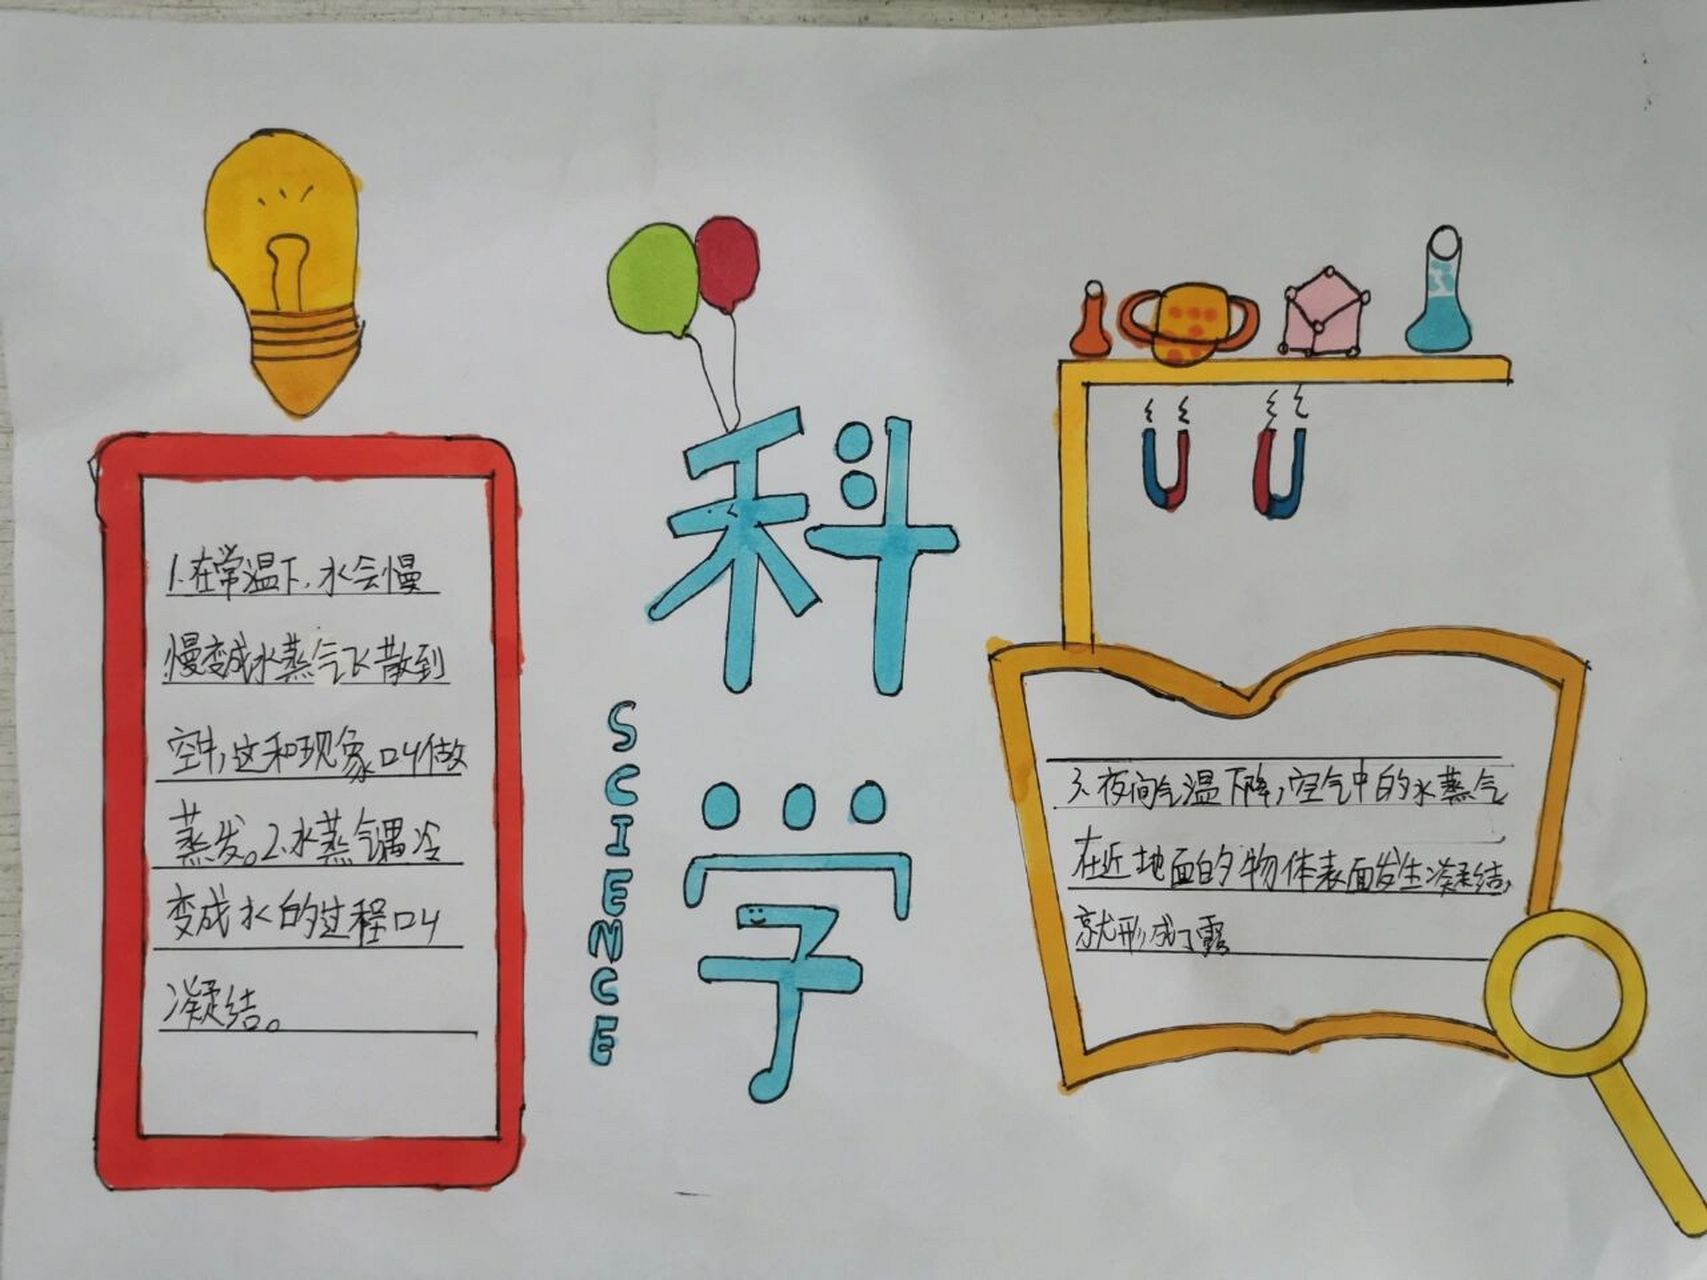 1.在常温下,水会慢
慢变成水蒸气飞散到
空中,这种现象叫做
蒸发。2.水蒸气遇冷
变成水的过程叫
凝结。
科学
SCIENCE
3.夜间气温下降,空气中的水蒸气
在近地面的物体表面发生凝结,
就形成了露